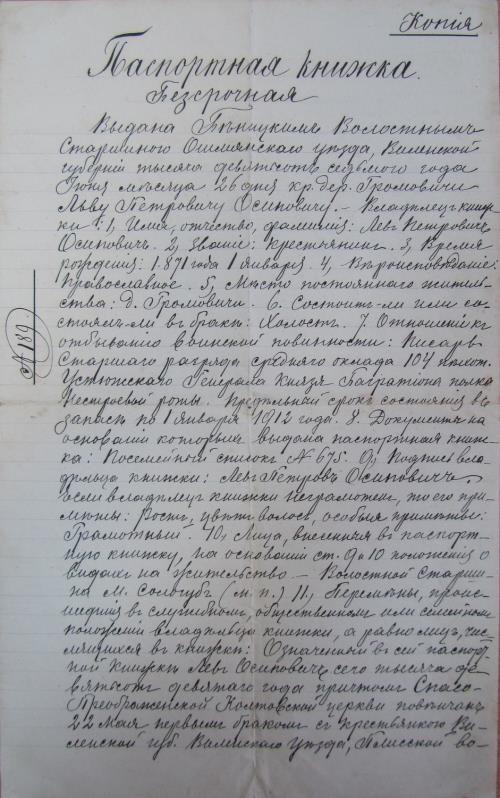 Копія
Паспортная книжка.
Безсрочная
Выдана Бѣницкимъ Волостнымъ
Старшиною Ошмянскаго уѣзда, Виленской
губерніи тысяча девятьсотъ седьмого года
Іюня мѣсяца 26 дня кр. дер. Громовичи
Льву Петровичу Осиповичу. – Владѣлецъ книж-
ки: 1, Имя, отчество, фамилія: Левъ Петровичъ
Осиповичъ. 2, Званіе: Крестьянинъ. 3, Время
рожденія: 1871 года 1 января. 4, Вѣроисповѣданіе:
Православное. 5, Мѣсто постояннаго житель-
ства: д. Громовичи. 6. Состоитъ-ли или со-
стоялъ-ли въ бракѣ: Холостъ. 7. Отношеніе къ
отбыванію воинской повинности: Писарь
Старшаго разряда средняго оклада 104 пѣхот.
Устюжскаго Генерала Князя Багратіона полка
Нестроевой роты. Предѣльный срокъ состоянія въ
запасѣ по 1 января 1912 года. 8. Документъ на
основаніи котораго выдана паспортная книж-
ка: Посемейный списокъ № 675. 9, Подпись вла-
дѣльца книжки: Левъ Петровъ Осиповичъ
если владѣлецъ книжки неграмотенъ, то его при-
мѣты: Ростъ, цвѣтъ волосъ, особыя примѣты:
Грамотный. 10, Лица, внесенныя въ паспорт-
ную книжку, на основаніи ст. 9 и 10 положенія о
видахъ на жительство – Волостной Старши-
на М. Сологубъ (м. п.) 11, Перемѣны, проис-
шедшія въ служебномъ, общественномъ или семейномъ
положеніи владѣльца книжки, а равно лицъ, чис-
лящихся въ книжкѣ: Означенный въ сей паспорт-
ной книжкѣ Левъ Осиповичъ сего тысяча де-
вятьсотъ девятаго года причтомъ Спасо-
Преображенской Колтовской церкви повѣнчанъ
22 Мая первымъ бракомъ съ крестьянкою Ви-
ленской губ. Виленскаго уѣзда, во-
№ 189